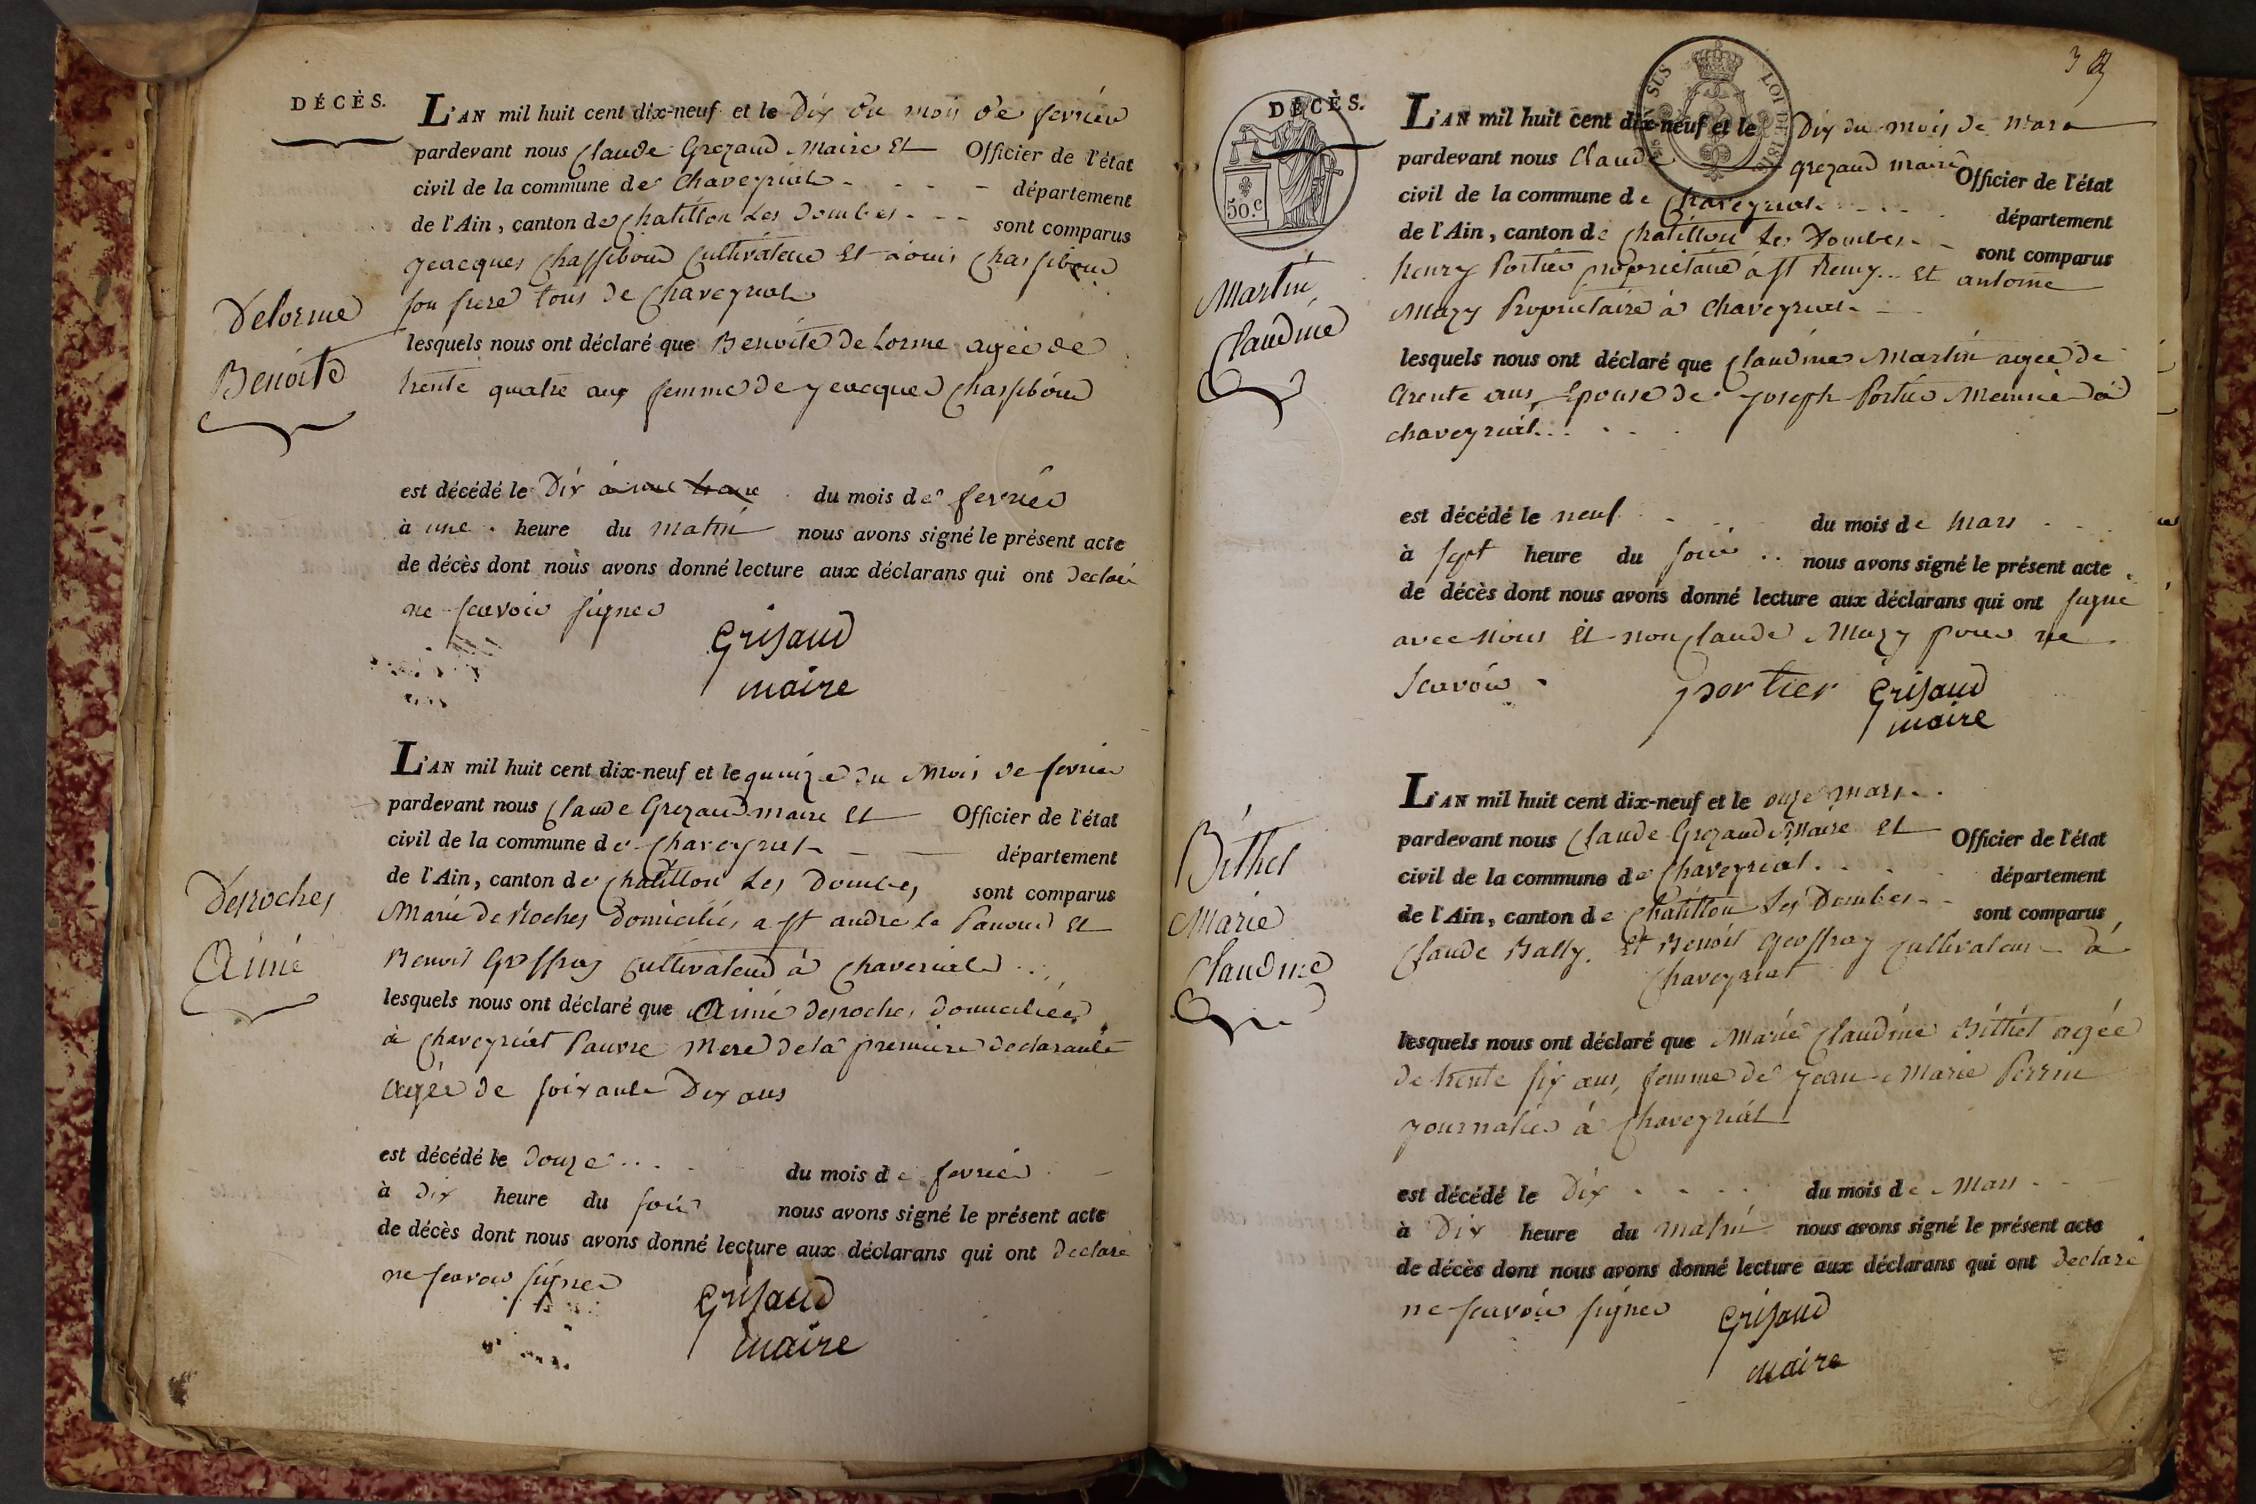 DÉCÈS.
L'AN mil huit cent dix-neuf et le Dix du mois de fevrier
pardevant nous Claude Grezaud Maire Et Officier de l'état
civil de la commune de Chaveyriat département
de l'Ain, canton de Chatillon Les Dombes sont comparus
Jeacques Chassiboud Cultivateur Et Louis Chassiboud
son frere tous de Chaveyriat
Delorme
Benoite
lesquels nous ont déclaré que Benoite de Lorme agée de
trente quatre ans femme de Jeacques Chassiboud
est décédé le Dix à une heure du mois de fevrier
à une heure du matin nous avons signé le présent acte
de décès dont nous avons donné lecture aux déclarans qui ont declaré
ne scavoir signer
Grisaud
maire
L'AN mil huit cent dix-neuf et le quinze du Mois de fevrier
pardevant nous Claude Grezaud maire Et Officier de l'état
civil de la commune de Chaveyriat département
de l'Ain, canton de Chatillon Les Dombes sont comparus
Desroches
Aimé
Marie de Roches domiciliée a st andré le Panoux Et
Benoit Geoffray Cultivateur à Chaveriat
lesquels nous ont déclaré que Aimé desroches domiciliée
à Chaveyriat Pauvre Mere de la premiere declarante
agée de soixante Dix ans
est décédé le douze du mois de fevrier
à dix heure du soir nous avons signé le présent acte
de décès dont nous avons donné lecture aux déclarans qui ont declaré
ne scavoir signer
Grisaud
maire
39
DÉCÈS.
50.c
LOI DE 1816
L'AN mil huit cent dix-neuf et le Dix du mois de Mars
pardevant nous Claude Grezaud maire Officier de l'état
civil de la commune de Chaveyriat département
de l'Ain, canton de Chatillon Les Dombes sont comparus
Martin
Claudine
henry Portier propriétaire à st Remy Et antoine
Mazy Propriétaire à Chaveyriat
lesquels nous ont déclaré que Claudine Martin agée de
trente ans Epouse de Joseph Portier Meunié à
chaveyriat
est décédé le neuf du mois de Mars
à sept heure du soir nous avons signé le présent acte
de décès dont nous avons donné lecture aux déclarans qui ont signé
avec nous Et non Claude Mazy pour ne
scavoir
portier Grisaud
maire
L'AN mil huit cent dix-neuf et le onze mars
pardevant nous Claude Grezaud Maire Et Officier de l'état
civil de la commune de Chaveyriat département
de l'Ain, canton de Chatillon Les Dombes sont comparus
Béthet
Marie
Claudine
Claude Bally Et Benoit Geoffray Cultivateur à
Chaveyriat
lesquels nous ont déclaré que Marie Claudine Béthet agée
de trente six ans, femme de Jean Marie Perrin
Journalier à Chaveyriat
est décédé le Dix du mois de Mars
à Dix heure du matin nous avons signé le présent acte
de décès dont nous avons donné lecture aux déclarans qui ont declaré
ne scavoir signer
Grisaud
maire